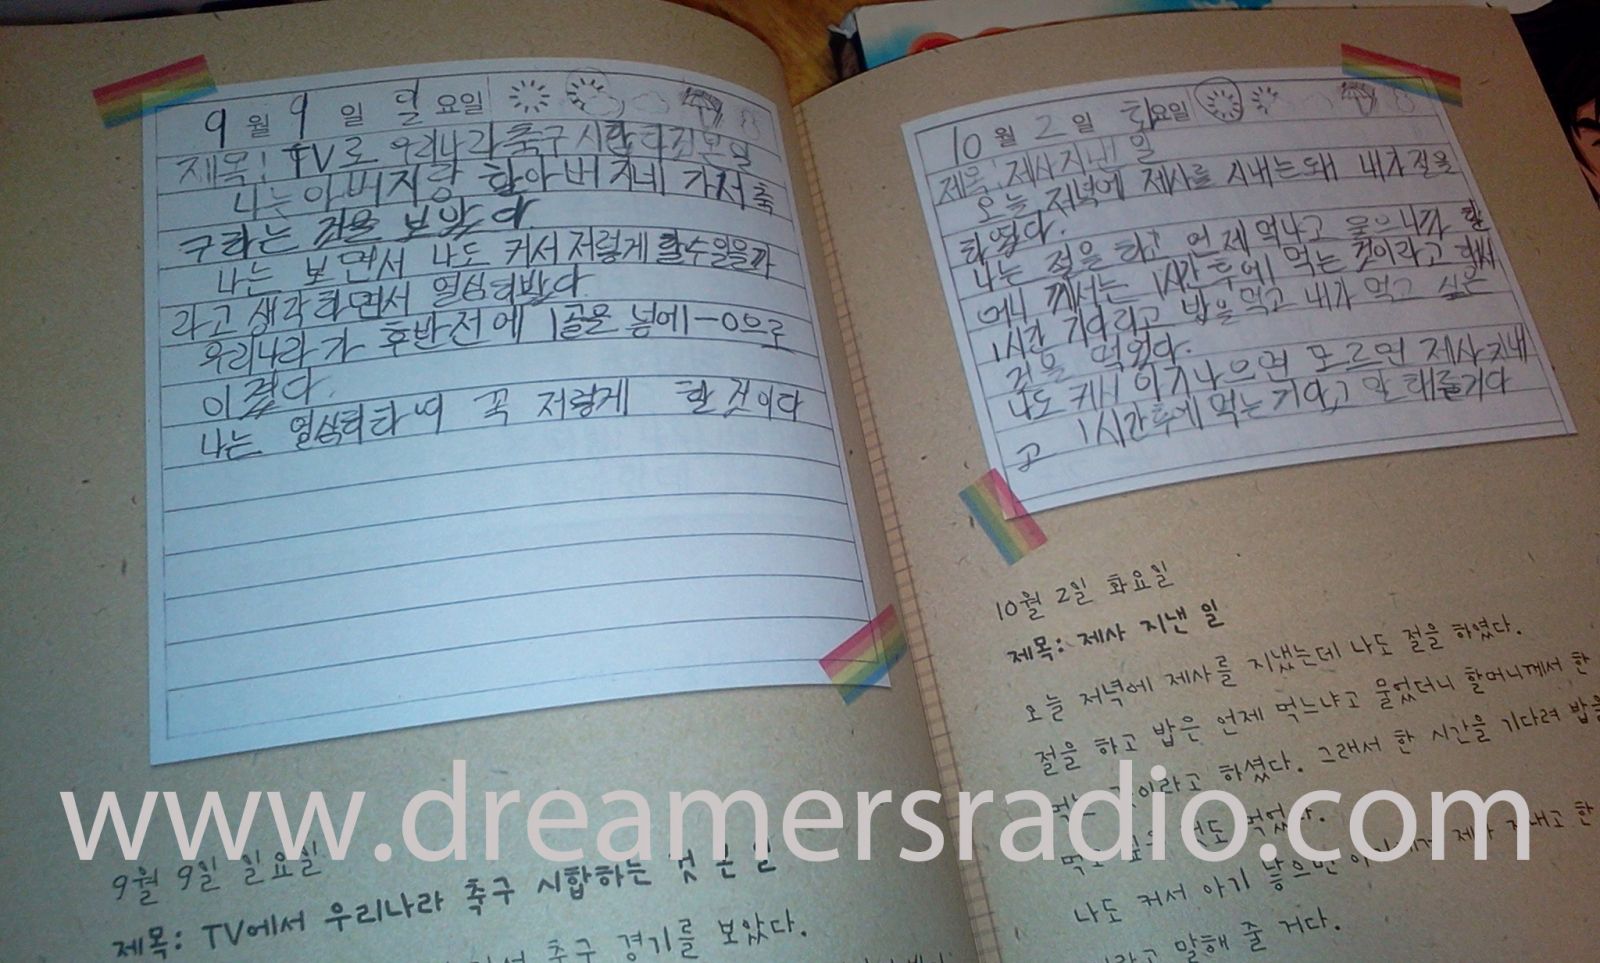 9월 9일 일요일
제목: TV로 우리나라 축구 시합 본일
나는 아버지랑 할아버지네 가서 축
구라는 것을 보았다.
나는 보면서 나도 커서 저렇게 할수있을까
라고 생각하면서 열심히봤다.
우리나라가 후반전에 1골을 넣에 1-0으로
이겼다.
나는 열심히하여 꼭 저렇게 할것이다
9월 9일 일요일
제목: TV에서 우리나라 축구 시합하는 것 본 일
축구 경기를 보았다.
10월 2일 화요일
제목: 제사지낸 일
오늘 저녁에 제사를 지내는돼 내가 절을
하였다.
나는 절을 하고 언제먹냐고 물으니까 할
머니 께서는 1시간후에 먹는 것이라고 해써
1시간 기다리고 밥을먹고 내가 먹고 싶은
것을 먹었다.
나도 커서 아기나으면 모르면 제사지내
고 1시간후에먹는거라고 말해줄거다
10월 2일 화요일
제목: 제사 지낸 일
오늘 저녁에 제사를 지냈는데 나도 절을 하였다.
절을 하고 밥은 언제 먹느냐고 물었더니 할머니께서 한
먹는 것이라고 하셨다. 그래서 한 시간을 기다려 밥을
먹고 싶은 것도 먹었다.
나도 커서 아기 낳으면 제사 지내고 한
말해 줄 거다.
www.dreamersradio.com